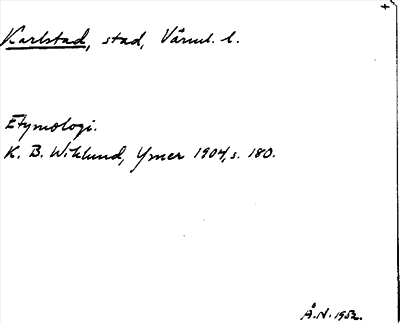 Karlstad, stad, Värml. l.
Etymologi.
K. B. Wiklund, Ymer 1904, s. 180.
Å.N. 1952.